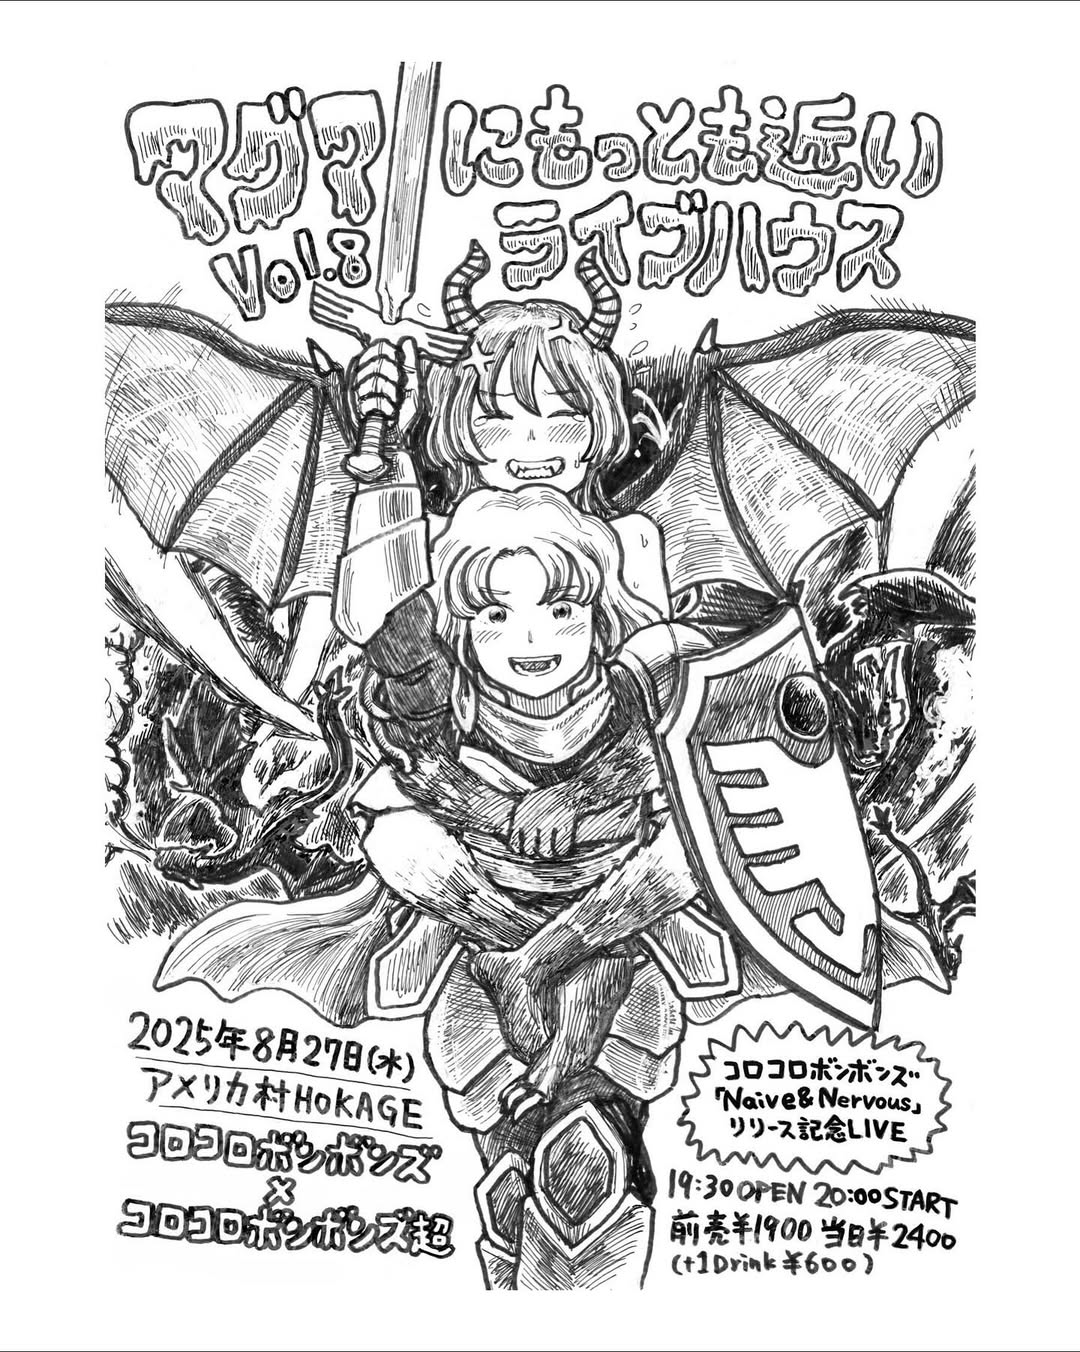 マグマ
にもっとも近い
ライブハウス
Vol.8
2025年8月27日(水)
アメリカ村HOKAGE
コロコロボンボンズ
×
コロコロボンボンズ超
コロコロボンボンズ
「Naive&Nervous」
リリース記念LIVE
19:30 OPEN 20:00 START
前売¥1900 当日¥2400
(+1Drink ¥600)